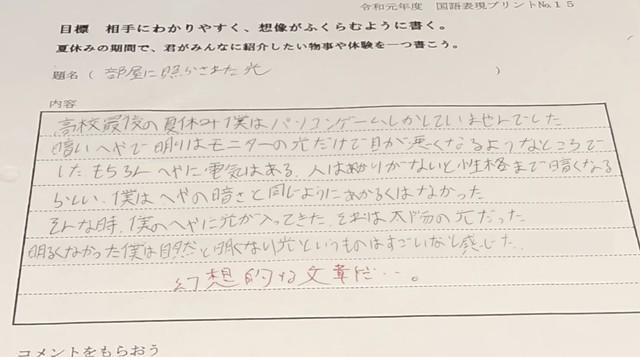 令和元年度 国語表現プリントNo.15
目標 相手にわかりやすく、想像がふくらむように書く。
夏休みの期間で、君がみんなに紹介したい物事や体験を一つ書こう。
題名（ 部屋に照らされた光 ）
内容
高校最後の夏休み僕はパソコンゲームしかしていませんでした
暗いへやで明りはモニターの光だけで目が悪くなるようなところで
したもちろんへやに電気はある、人はあかりがないと性格まで暗くなる
らしい、僕はへやの暗さと同じようにあかるくはなかった
そんな時、僕のへやに光が入ってきた、それは太陽の光だった
明るくなかった僕は自然だと明るい光というものはすごいなと感じた、
幻想的な文章だ…。
コメントをもらおう